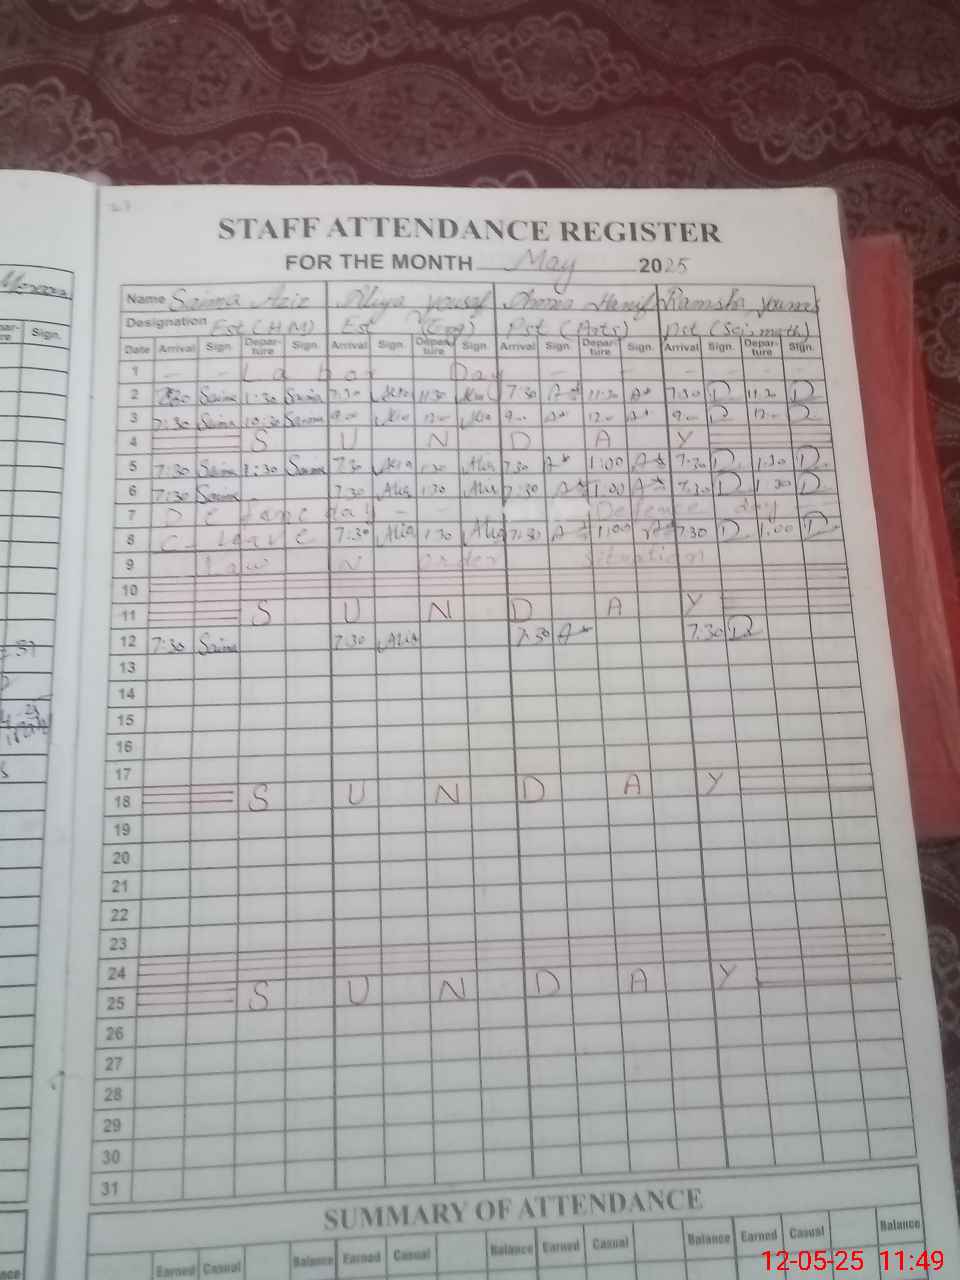 STAFF ATTENDANCE REGISTER
FOR THE MONTH May 2025
Name Saima Aziz Aliya yousaf Hanif Ramsha younas
Designation Est (H.M) Est (Eng) Pst (Arts) Pst (Sci-math)
Date Arrival Sign. Departure Sign. Arrival Sign. Departure Sign. Arrival Sign. Departure Sign. Arrival Sign. Departure Sign.
1 - - Labour Day - - - - - -
2 7:30 Saima 1:30 Saima 7:30 Alia 11:30 Alia 7:30 11:30 7:30 11:30
3 7:30 Saima 10:30 Saima 9:00 Alia 12:00 Alia 9:00 12:00 9:00 12:00
4 S U N D A Y
5 7:30 Saima 1:30 Saima 7:30 Alia 1:30 Alia 7:30 1:00 7:30 1:30
6 7:30 Saima - 7:30 Alia 1:30 Alia 7:30 1:00 7:30 1:30
7 Defence day - - Defence day -
8 C- leave 7:30 Alia 1:30 Alia 7:30 1:00 7:30 1:00
9 Law N order situation
10
11 S U N D A Y
12 7:30 Saima 7:30 Alia 7:30 7:30
13
14
15
16
17
18 S U N D A Y
19
20
21
22
23
24
25 S U N D A Y
26
27
28
29
30
31
SUMMARY OF ATTENDANCE
Earned Casual Balance Earned Casual Balance Earned Casual Balance Earned Casual Balance
12-05-25 11:49